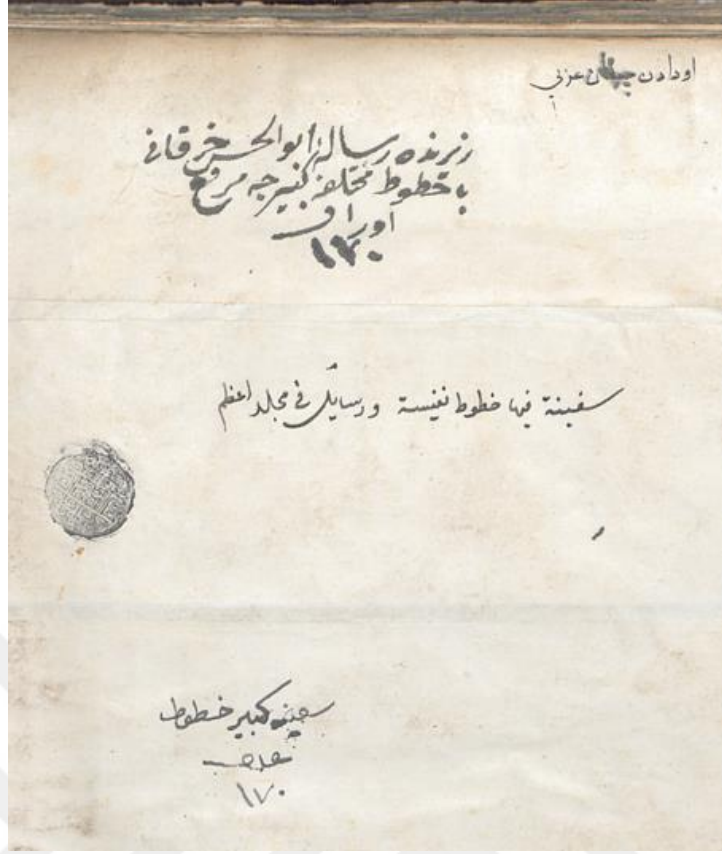 اودادن عزتی
رساله ابو الحسن خرقانی
با خطوط مختلفه کبیرجه مرقع
اوراق
١٧٠
سفينة فيها خطوط نفيسة ورسايل فى مجلد اعظم
سفينه كبير خطوط
عدد
١٧٠